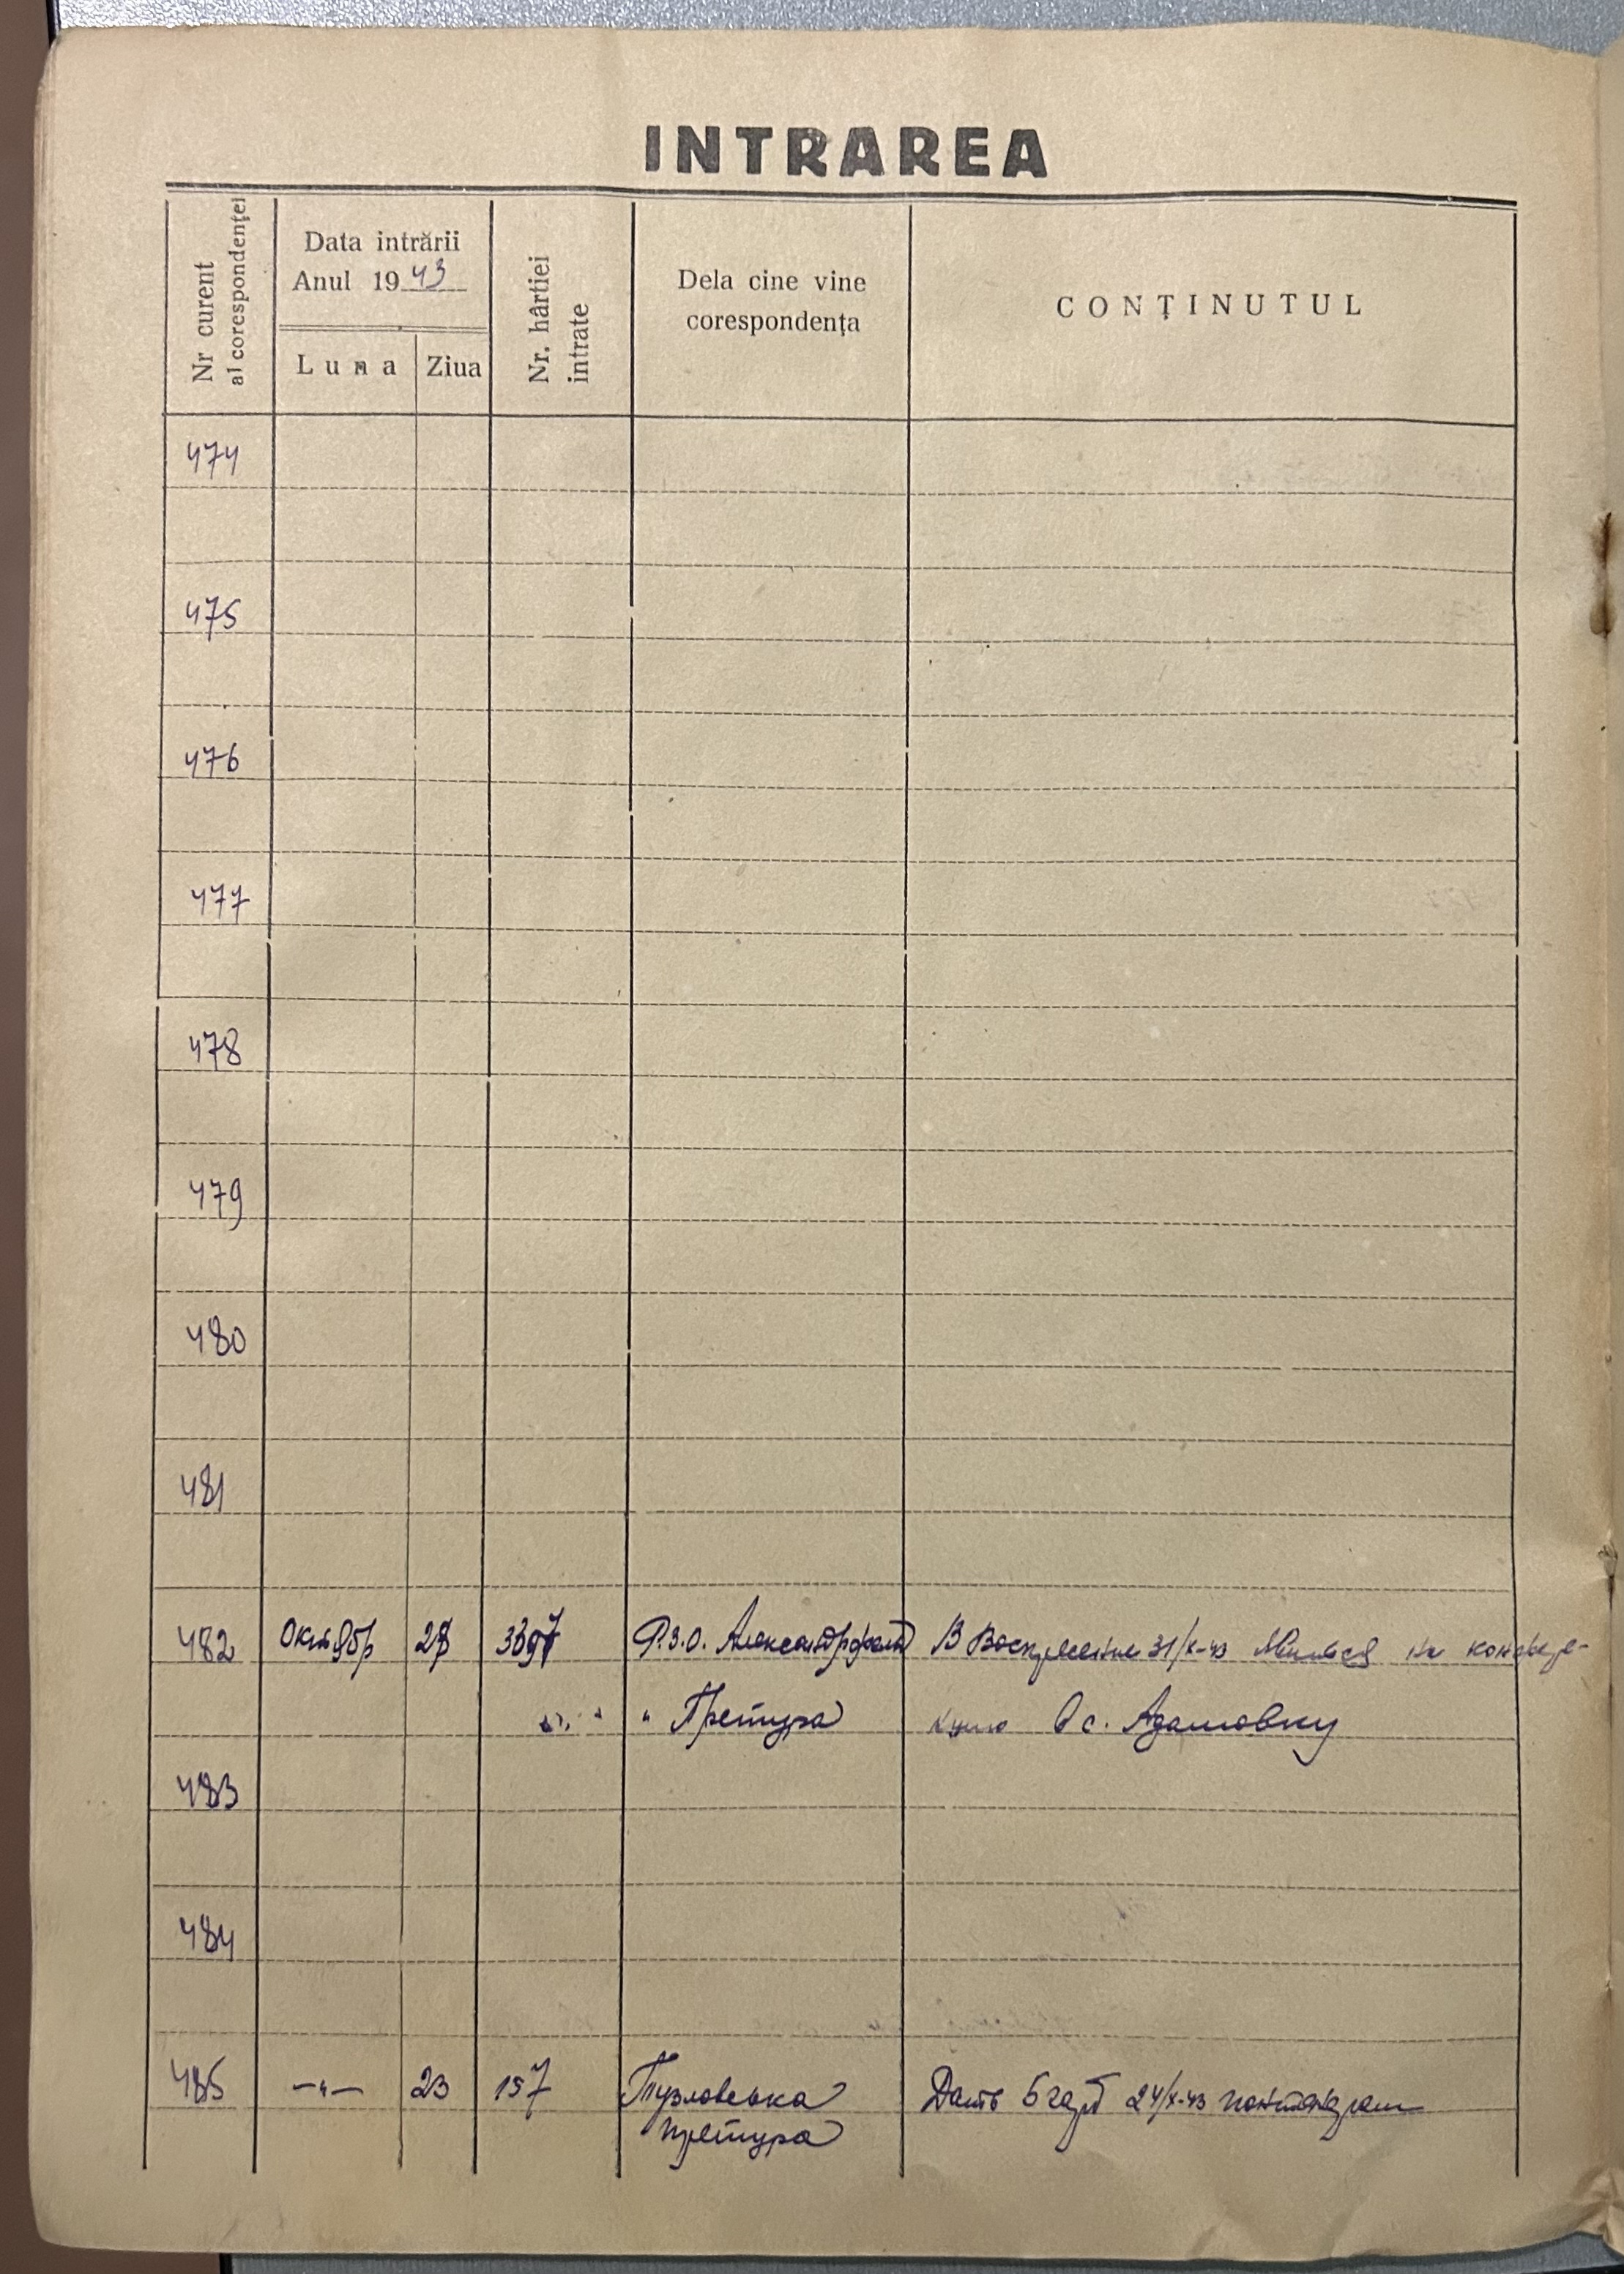 INTRAREA
Nr curent al corespondenței
Data intrării
Anul 1943
Luna Ziua
Nr. hârtiei intrate
Dela cine vine
corespondența
CONŢINUTUL
474
475
476
477
478
479
480
481
482 Октябр 28 3397 Р.З.О. Александрфельд В Воскресение 31/X-43 на
" Претура с. Адамовку
483
484
485 —"— 23 157 Тузловська Дать 24/X-43
претура